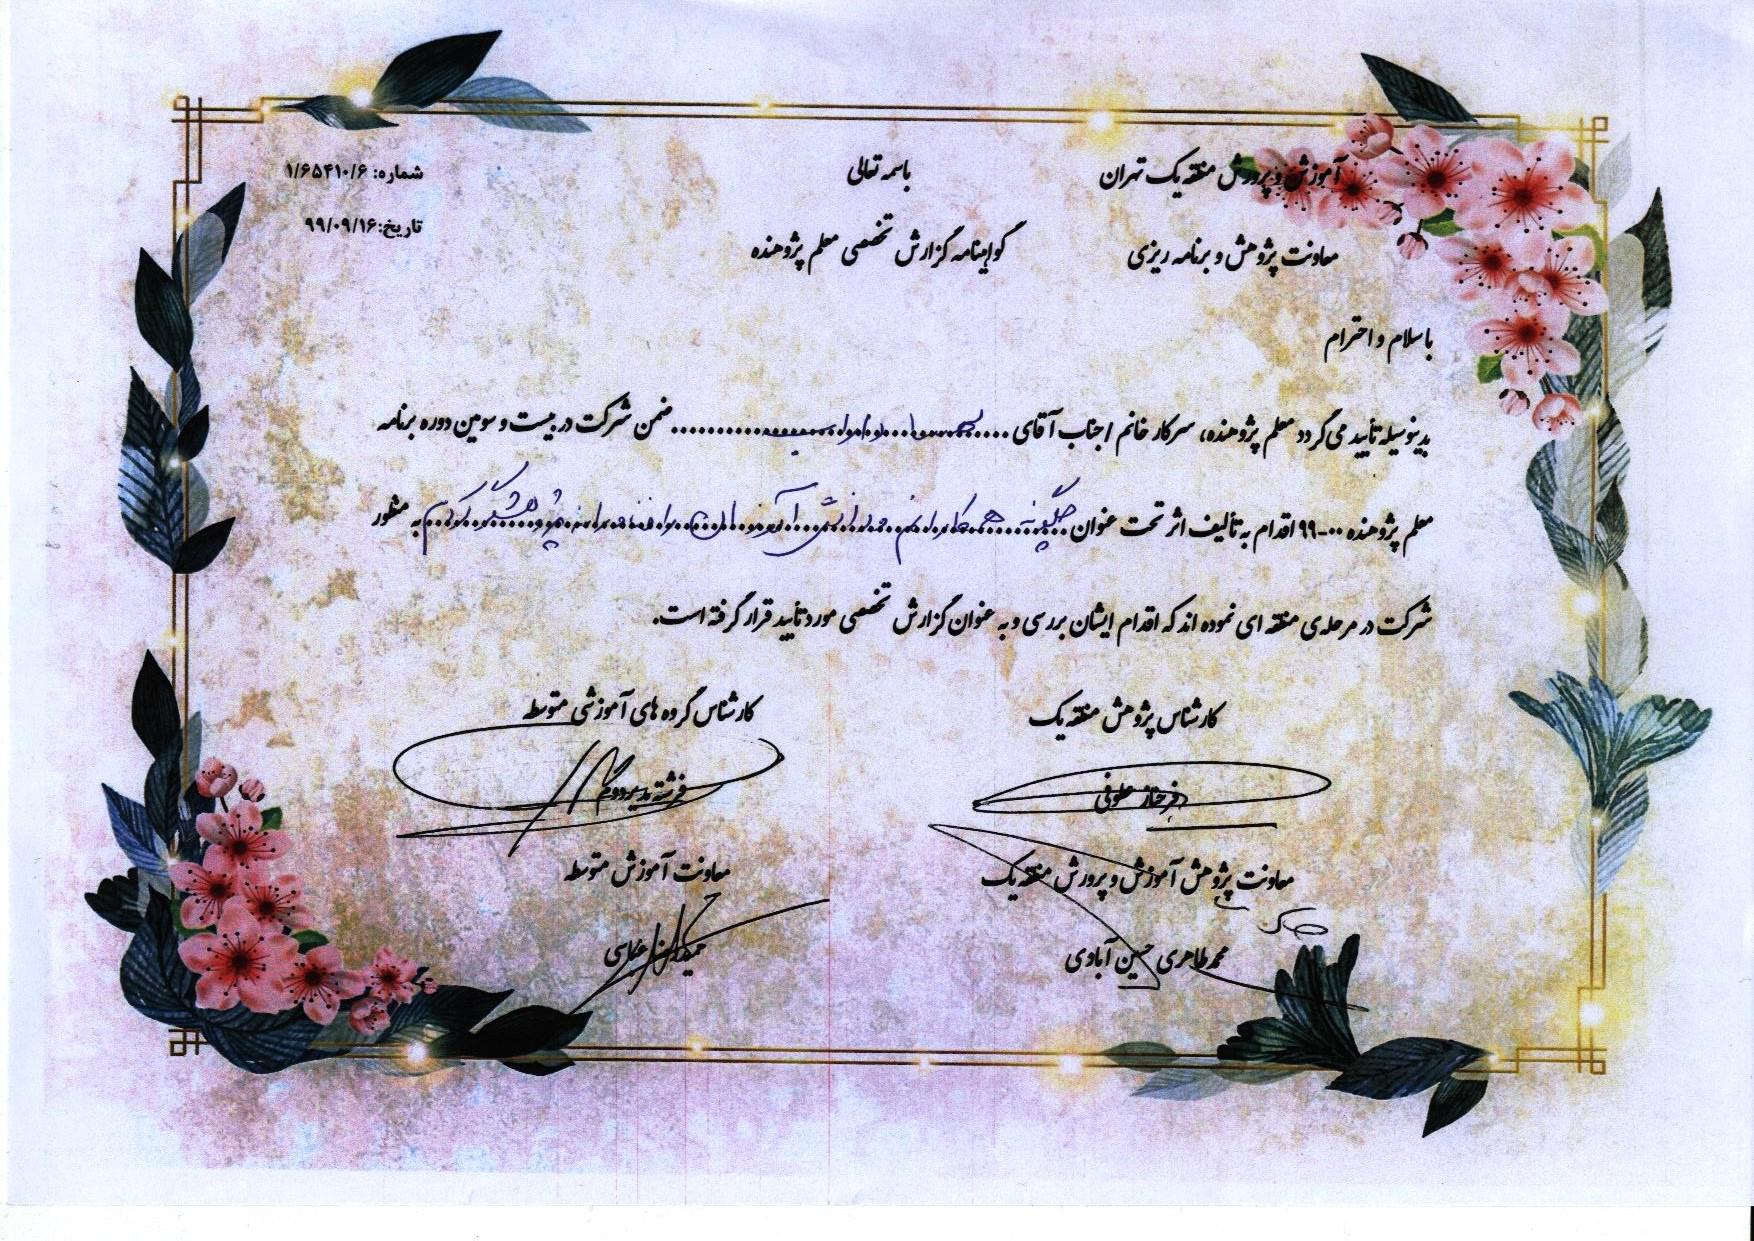 باسمه تعالی
آموزش و پرورش منطقه یک تهران
شماره: ۱/۶۵۴۱۰/۶
معاونت پژوهش و برنامه ریزی
گواهینامه گزارش تخصصی معلم پژوهنده
تاریخ: ۹۹/۰۹/۱۶
با سلام و احترام
بدینوسیله تأیید می گردد معلم پژوهنده، سرکار خانم / جناب آقای ضمن شرکت در بیست و سومین دوره برنامه
معلم پژوهنده ۰۰-۹۹ اقدام به تألیف اثر تحت عنوان چگونه دانش آموزان را کردم به منظور
شرکت در مرحله ی منطقه ای نموده اند که اقدام ایشان بررسی و به عنوان گزارش تخصصی مورد تأیید قرار گرفته است.
کارشناس پژوهش منطقه یک
فرحناز علوفی
کارشناس گروه های آموزشی متوسطه
فرشته
معاونت پژوهش آموزش و پرورش منطقه یک
محمد طاهری حسین آبادی
معاونت آموزش متوسطه
حمیدرضا عباسی